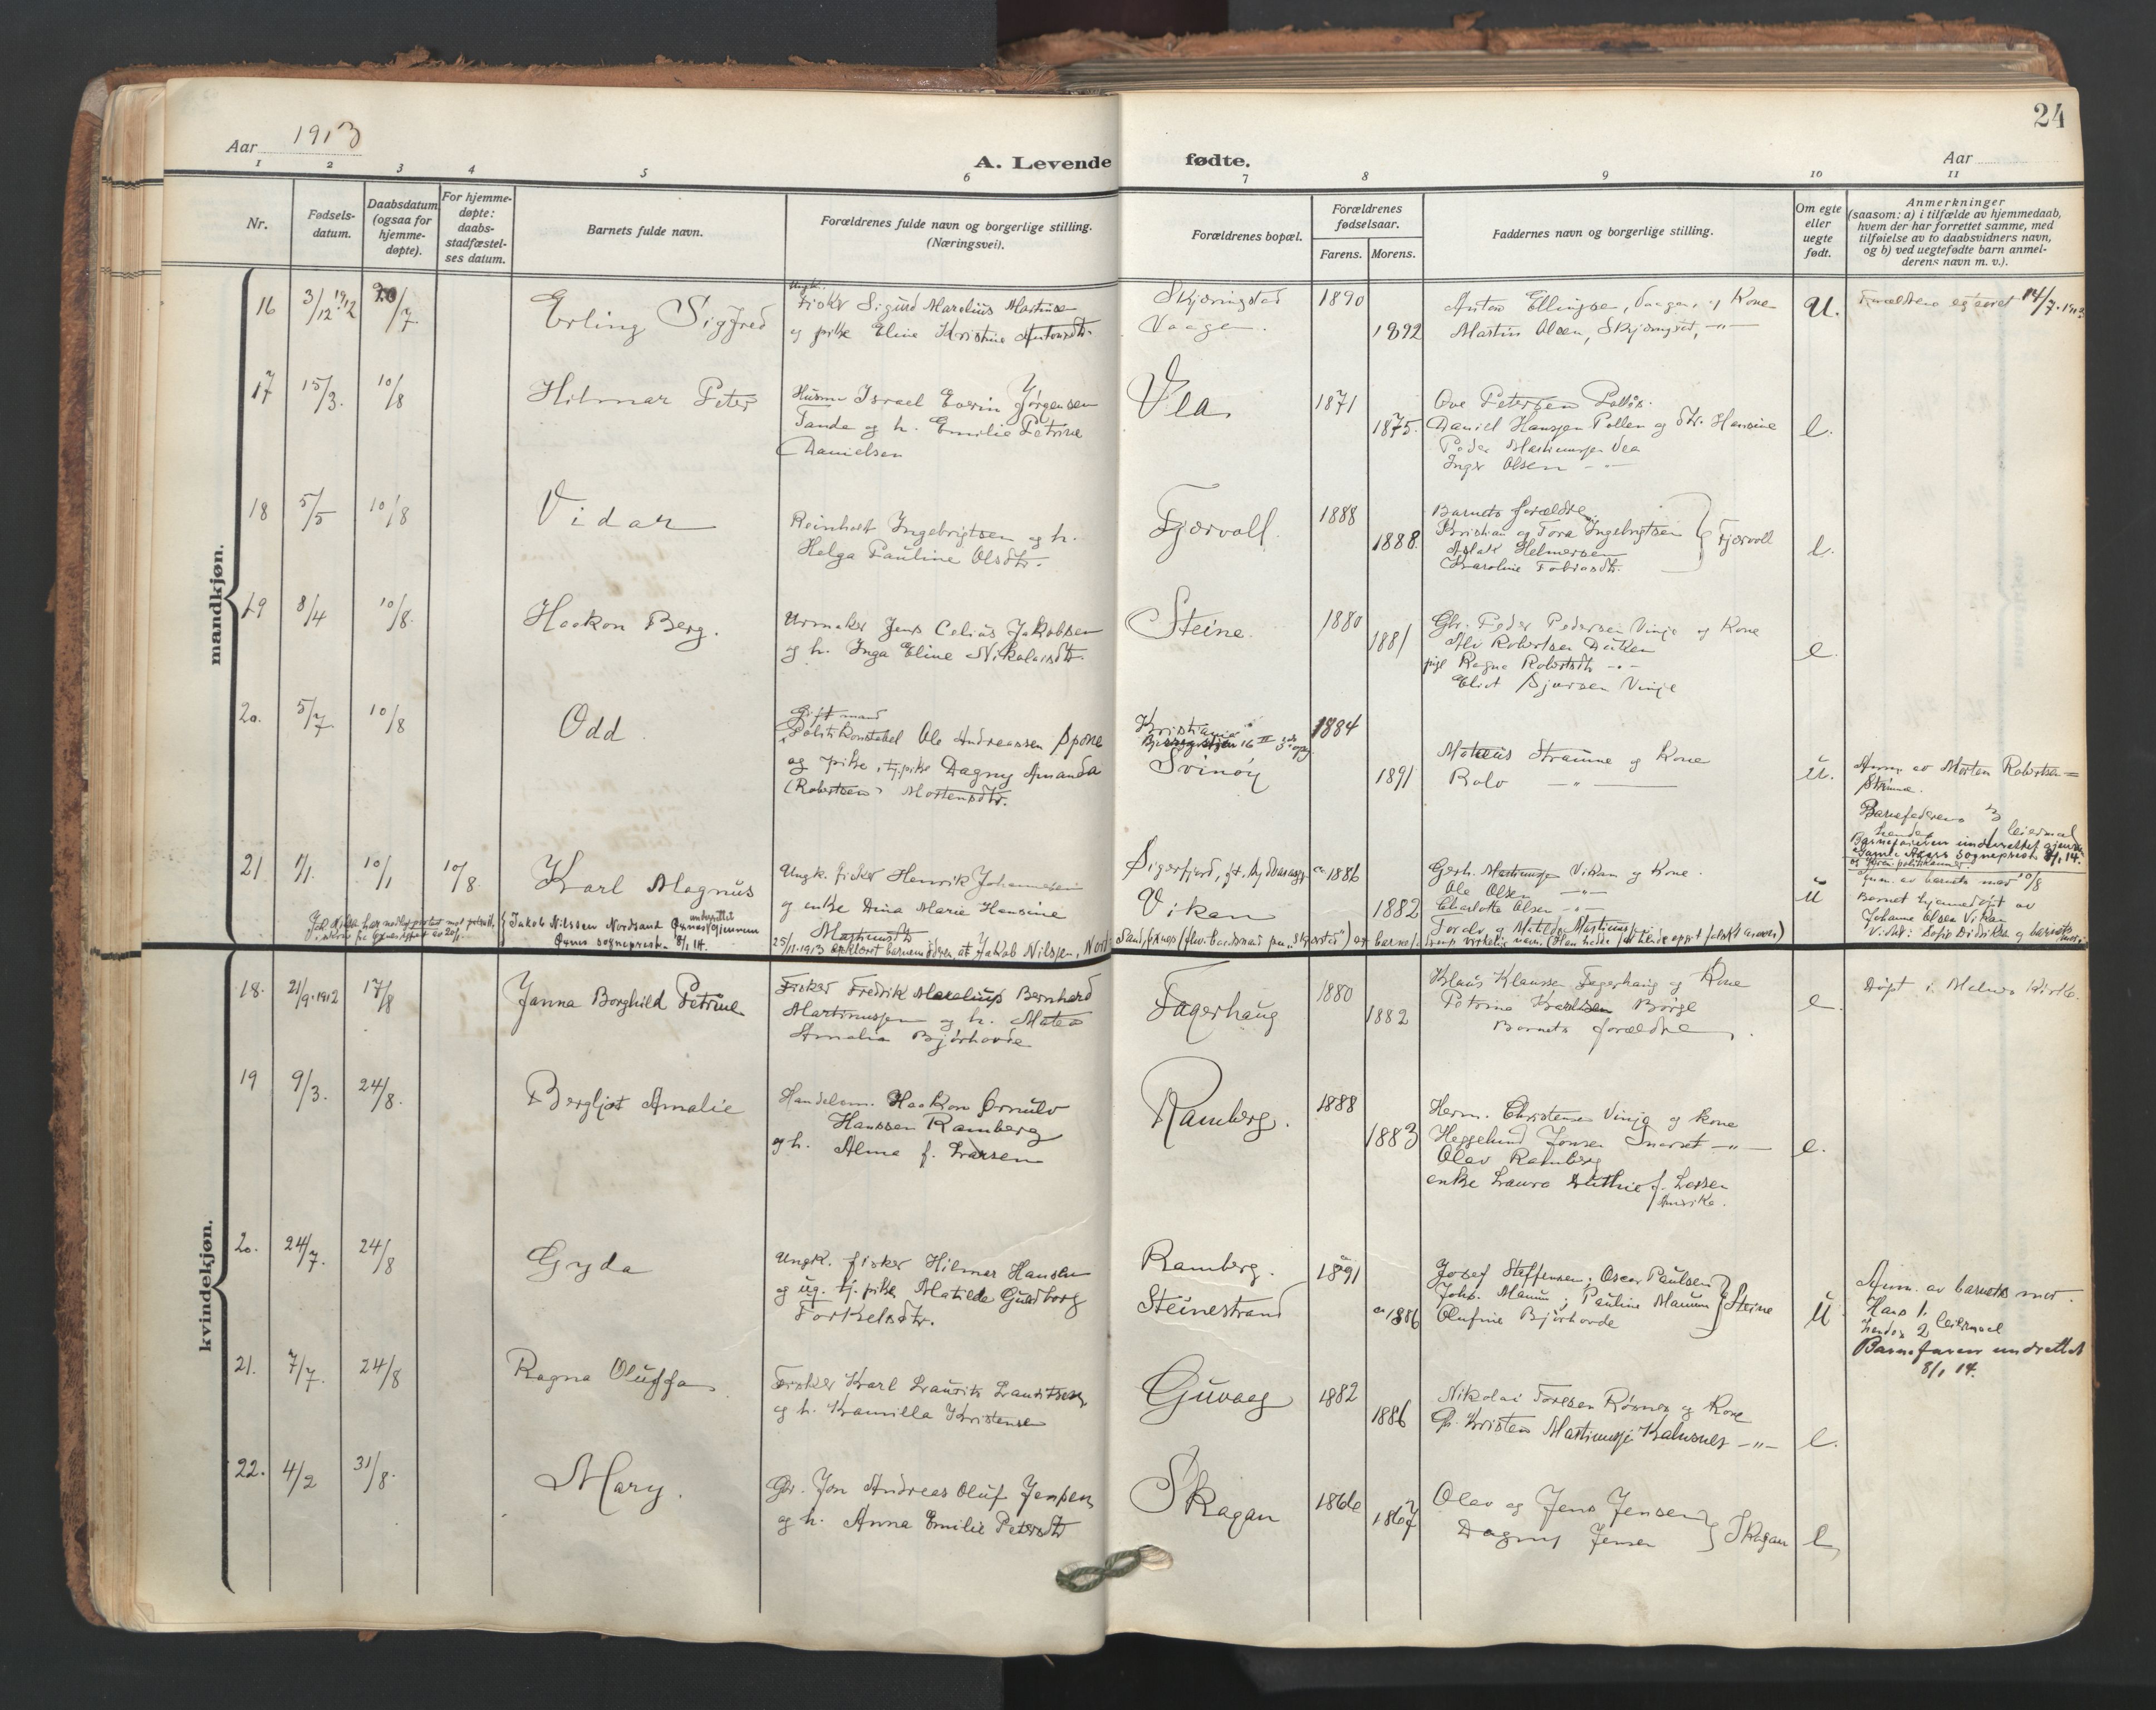 24
Aar 1913
A. Levende fødte.
Aar
1 2 3 4 5 6 7 8 9 10 11
Nr.
Fødsels-
datum.
Daabsdatum
(ogsaa for
hjemme-
døpte).
For hjemme-
døpte:
daabs-
stadfæstel-
ses datum.
Barnets fulde navn.
Forældrenes fulde navn og borgerlige stilling.
(Næringsvei).
Forældrenes bopæl.
Forældrenes
fødselsaar.
Farens. Morens.
Faddernes navn og borgerlige stilling.
Om egte
eller
uegte
født.
Anmerkninger
(saasom: a) i tilfælde av hjemmedaab,
hvem der har forrettet samme, med
tilføielse av to daabsvidners navn,
og b) ved uegtefødte barn anmel-
derens navn m. v.).
mandkjøn.
16 3/12 1912 /7
Erling Sigfred
Ungk.
Fisker Sigurd Marelius Martinsen
og pike Eline Kristine Antonsdtr.
Skjæringstad
Vaagen.
1890
1892
Anton Ellingsen, Vaagen, og Kone
Martin Olsen, Skjæringstad, -"-
U.
Forældrene egteviet 14/7 1913
17 15/3. 10/8
Hilmar Peter
Husm. Israel Evrin Jørgensen
Tande og h. Emilie Petrine
Danielsen
Vea
1871
1875.
Ove Petersen
Daniel Hansen Pollen og dtr. Hansine
Peder Martinussen Vea
Inger Olsen -"-
e.
18 5/5 10/8
Vidar
Reinholt Ingebrigtsen og h.
Helga Pauline Olsdtr.
Fjærvoll.
1888
1888.
Barnets forældre
Kristian og Tora Ingebrigtsen
Aslak Helmersen
Karoline Tobiasdtr.
Fjærvoll
e.
19 8/4 10/8.
Haakon Berg.
Urmaker Jens Celius Jakobsen
og h. Inga Eline Nikolaisdtr.
Steine.
1880
1881
Gbr. Peder Pedersen Vinje og Kone
Alv Robertsen
pige Ragna Robertsdtr -"-
Eliot Sjursen Vinje
e.
20. 5/7. 10/8
Odd
Gift mand
Politikonstabel Ole Andreassen Spone
og pike, tj.pike Dagny Amanda
(Robertsen) Mortensdtr.
Kristiania
16 II
Svinøy
1884
1891
Mateus Stramme og Kone
Rolv -"-
u.
Anm. av Morten Robertsen
Barnefederens 3
hendes 1 leiermaal
Barnefaren underrettet gjennem
Gamle Akers sogneprest 8/1 14.
21 1/1. 10/1 10/8
Karl Magnus
Ungk. fisker Henrik Johannesen
og enke Dina Marie Hansine
Martinusdtr
Sigerfjord,
Vikan
ca 1886
1882
Gerh. Martinussen Vikan og Kone.
Ole Olsen -"-
Charlotte Olsen -"-
Tordv og Matilde Martinussen
u
Anm. av barnets mor 10/8
Barnet hjemmedøpt av
Johanne Olsen Vikan
Vidner: Sofie Didriksen og barnets mor
Jakob Nilssen Nordsand Øxnes
underrettet gjennem
Øxnes sogneprest 8/1 14.
25/11-1913 erklæret barnemoderen, at Jakob Nilssen, Nord-
sand, Øxnes er barnefarens virkelige navn.
kvindekjøn.
18. 21/9.1912 17/8
Janna Borghild Petrine
Fisker Fredrik Marelius Bernhard
Martinussen og h. Matea
Amalia Bjørhovde
Fagerhaug
1880
1882
Klaus Klaussen Fagerhaug og Kone
Petrina Karlsen Børge
Barnets forældre.
e.
Døpt i Melnes Kirke.
19 9/3. 24/8.
Bergljot Amalie
Handelsm. Haakon Ørnulv
Hanssen Ramberg
og h. Alma f. Larsen
Ramberg.
1888
1883
Herm. Christensen Vinje og kone
Heggelund Jonsen -"-
Olav Ramberg
enke Laura f. Larsen
Amerika.
e.
20. 24/7. 24/8
Gyda
Ungk. fisker Hilmar Hansen
og ug. tj. pike Matilde Guldborg
Torkelsdtr.
Ramberg.
Steinestrand
ca 1891
ca 1886
Josef Steffensen; Oscar Paulsen
Joh. Manum; Pauline Manum
Olufine Bjørhovde
Steine
U
Anm. av barnets mor.
Hans 1.
hendes 2 leiermaal
Barnefaren underrettet
8/1 14.
21. 7/7. 24/8
Ragna Oluffa
Fisker Karl Laurits Lauritsen
og h. Kamilla Kristensen
Guvaag
1882
1886
Nikolai Toresen Røsnes og Kone
Gb. Kristen Martinussen Kalnsnes -"-
e.
22. 4/2 31/8.
Mary.
Gbr. Jon Andreas Oluf Jensen
og h. Anna Emilie Petersdtr
Skagan
1866
1867
Olav og Jens Jensen
Dagny Jensen
Skagan
e